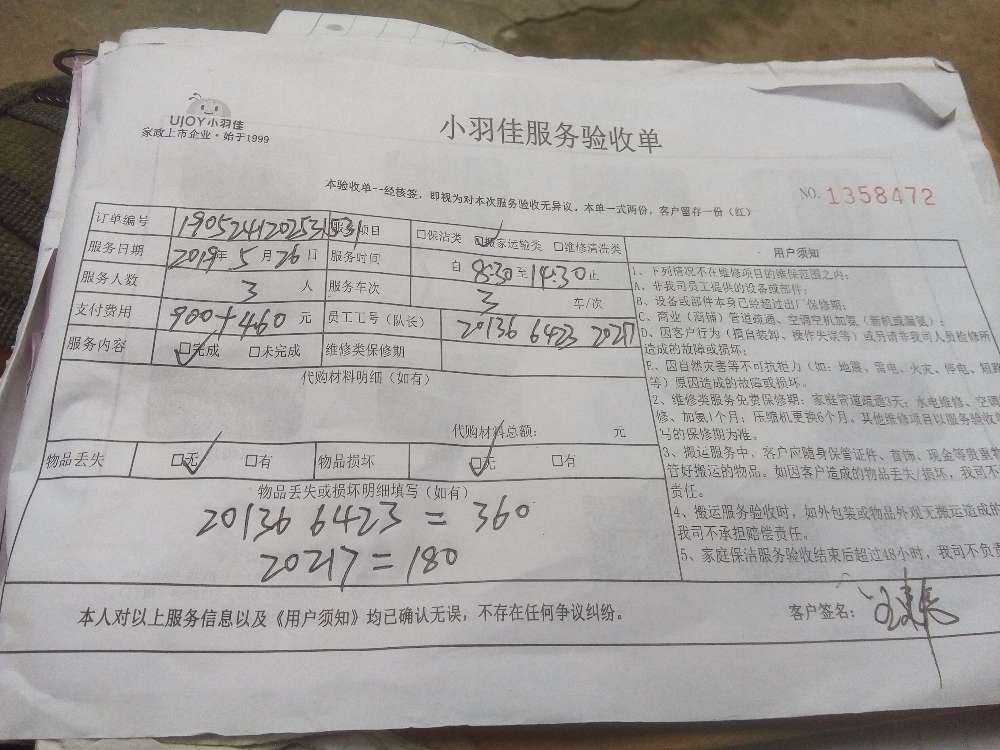 UJOY小羽佳
家政上市企业·始于1999
小羽佳服务验收单
本验收单一经核签，即视为对本次服务验收无异议。本单一式两份，客户留存一份（红）
NO. 1358472
订单编号 19052412025315331 项目 □保洁类 ☑搬家运输类 □维修清洗类
服务日期 2019年5月26日 服务时间 自8:30至14:30止
服务人数 3人 服务车次 3车/次
支付费用 900+460元 员工工号（队长） 20136 6423 20217
服务内容 ☑完成 □未完成 维修类保修期
代购材料明细（如有）
代购材料总额： 元
物品丢失 ☑无 □有 物品损坏 ☑无 □有
物品丢失或损坏明细填写（如有）
20136 6423 = 360
20217 = 180
用户须知
1、下列情况不在维修项目的维保范围之内：
A、非我司员工提供的设备或部件；
B、设备或部件本身已经超过出厂保修期；
C、商业（商铺）管道疏通、空调空机加氨（新机或漏氨）；
D、因客户行为（擅自装卸、操作失误等）或另请非我司人员检修所
造成的故障或损坏；
E、因自然灾害等不可抗拒力（如：地震、雷电、火灾、停电、短路
等）原因造成的故障或损坏。
2、维修类服务免费保修期：家庭管道疏通3天；水电维修、空调
修、加氨1个月；压缩机更换6个月，其他维修项目以服务验收
写的保修期为准。
3、搬运服务中，客户应随身保管证件、首饰、现金等贵重物
管好搬运的物品。如因客户造成的物品丢失/损坏，我司不
责任。
4、搬运服务验收时，如外包装或物品外观无搬运造成的
我司不承担赔偿责任。
5、家庭保洁服务验收结束后超过48小时，我司不负责
本人对以上服务信息以及《用户须知》均已确认无误，不存在任何争议纠纷。
客户签名：